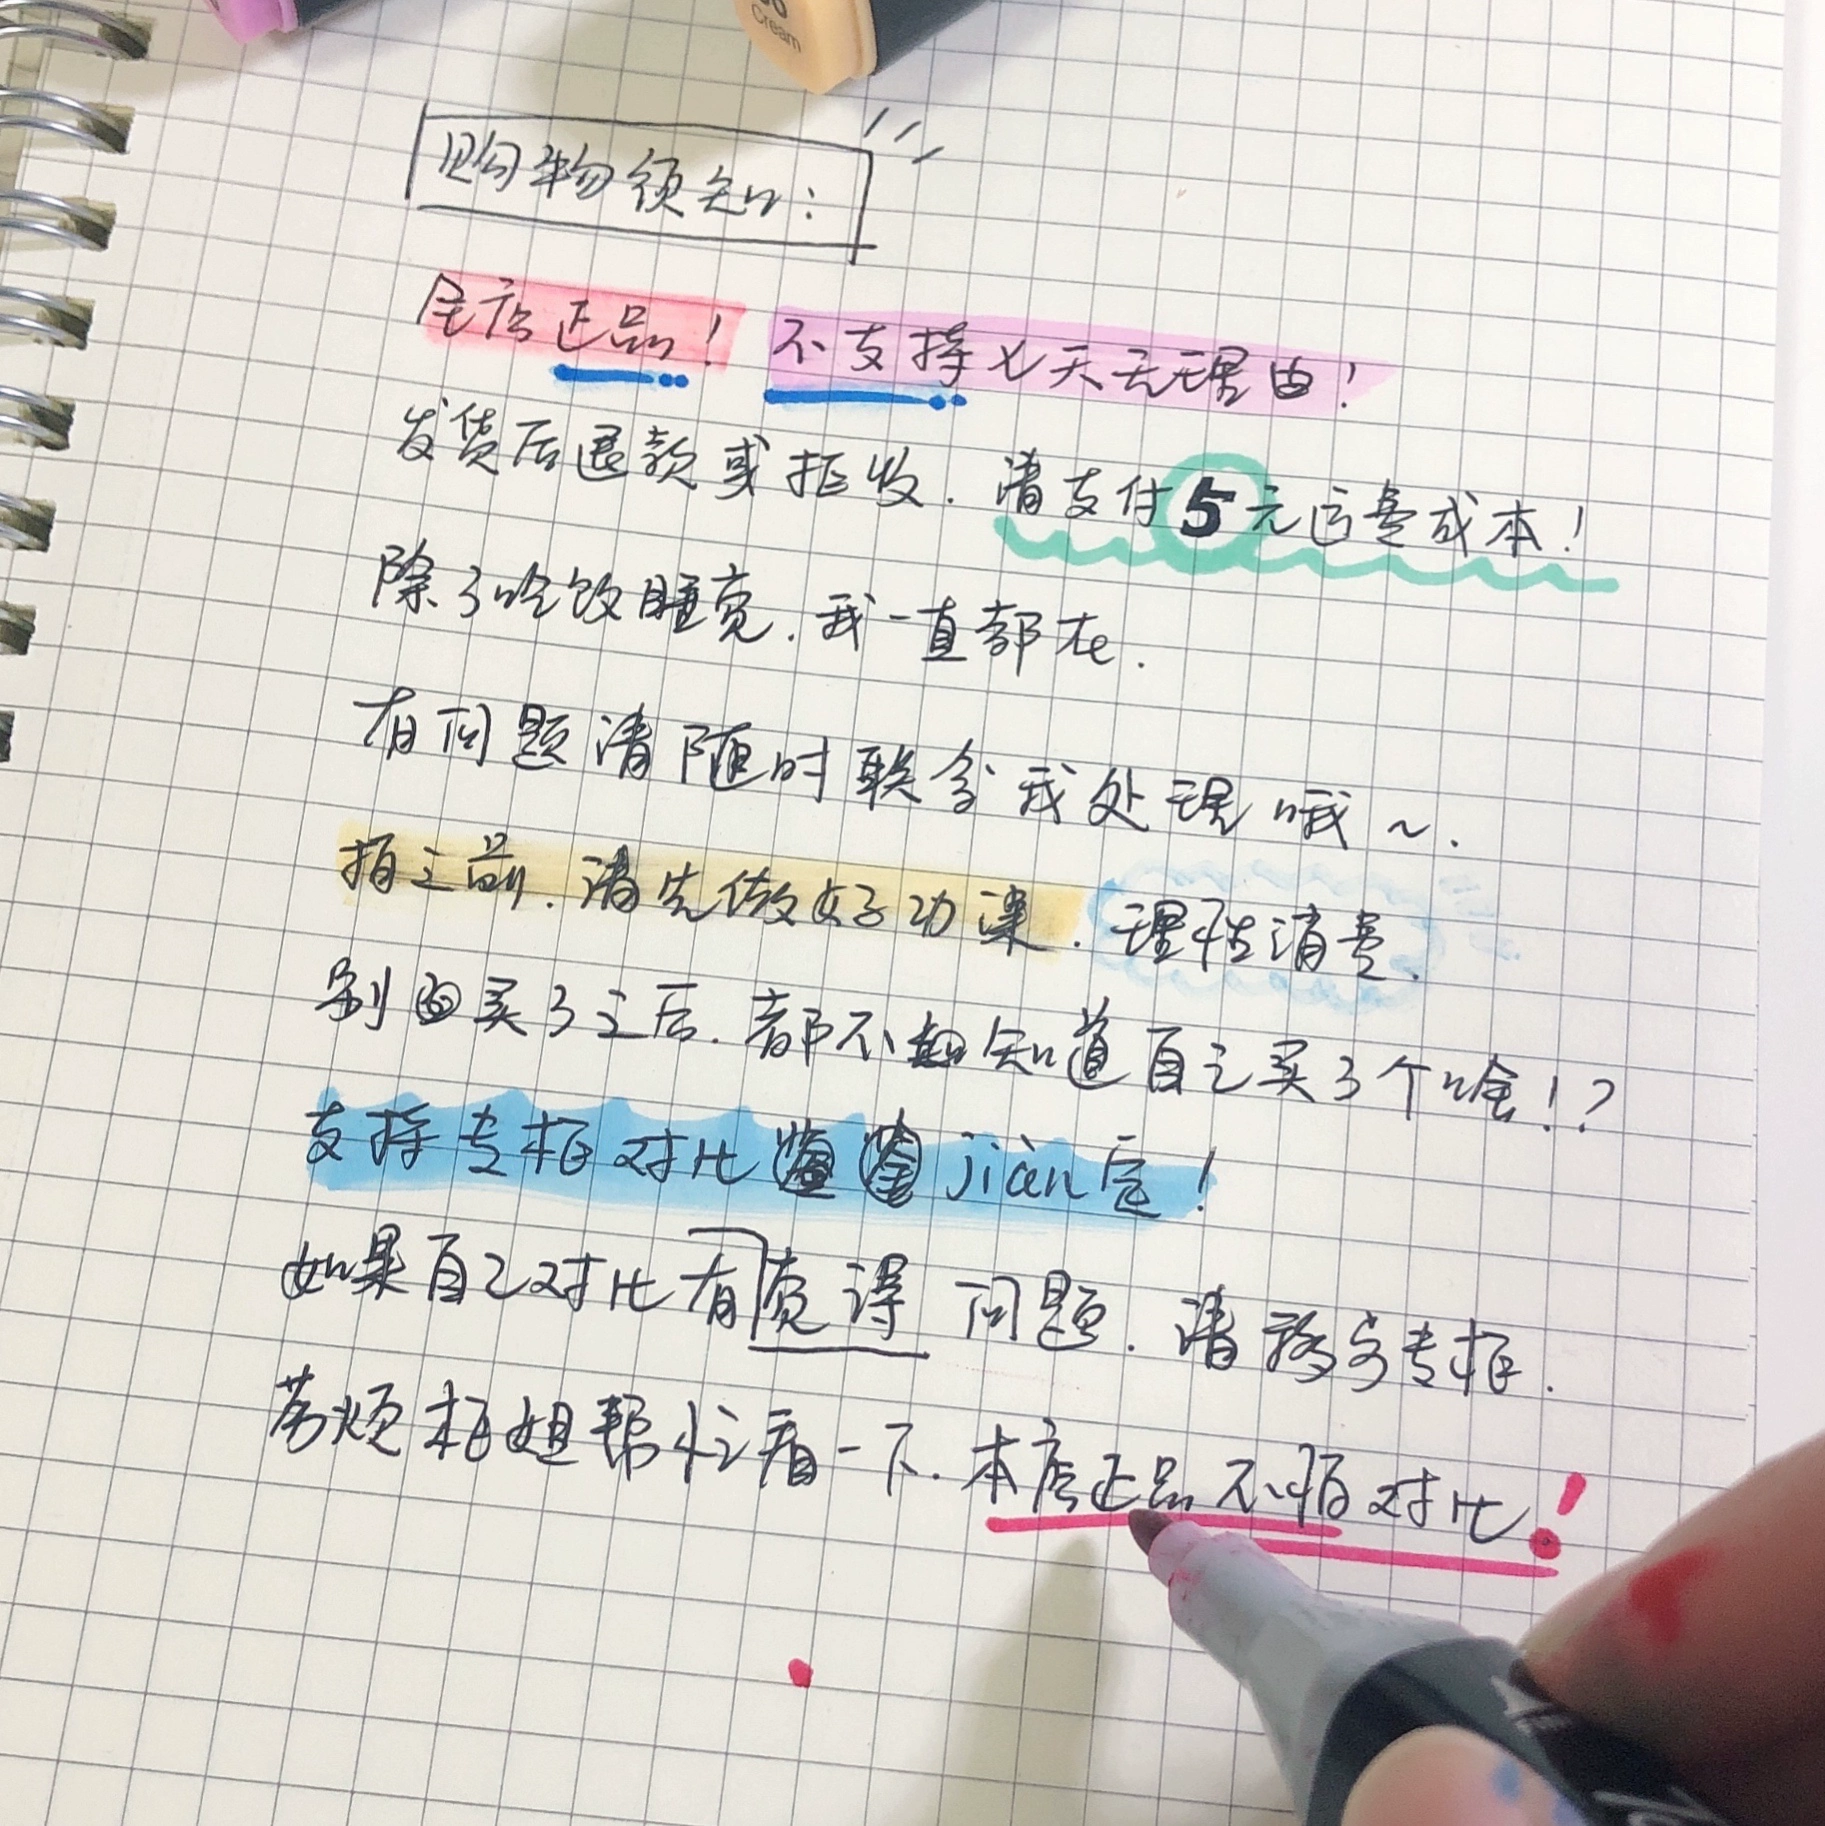 Cream
购物须知:
全店正品! 不支持七天无理由!
发货后退款或拒收.请支付5元运费成本!
除了吃饭睡觉.我一直都在.
有问题请随时联系我处理哦~.
拍之前.请先做好功课.理性消费.
别买了之后.都不知道自己买了个啥!?
支持专柜对比jiàn定!
如果自己对比有觉得问题.请移步专柜.
劳烦柜姐帮忙看一下.本店正品不怕对比!